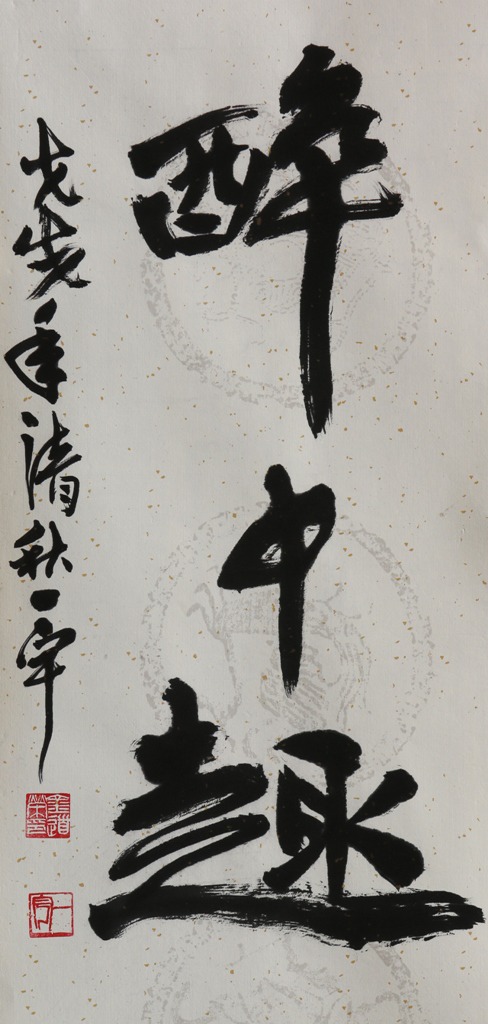 醉中趣
戊戌年清秋一宇